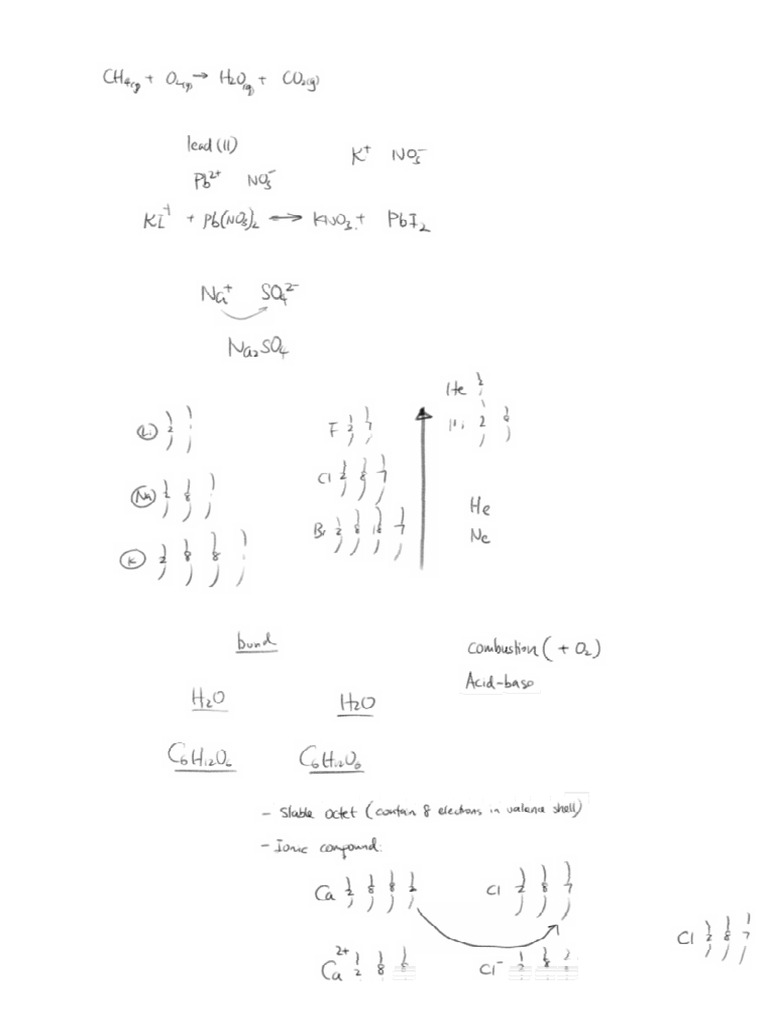 CH₄(g) + O₂(g) → H₂O(g) + CO₂(g)
lead (II)
K⁺ NO₃⁻
Pb²⁺ NO₃⁻
KI + Pb(NO₃)₂ ↔ KNO₃ + PbI₂
Na⁺ SO₄²⁻
Na₂SO₄
He 2
Li 2 1
F 2 7
2 8
Na 2 8 1
Cl 2 8 7
He
Br 2 8 18 7
Ne
K 2 8 8 1
bond
combustion (+ O₂)
Acid-base
H₂O H₂O
C₆H₁₂O₆ C₆H₁₂O₆
- Stable octet (contain 8 electrons in valence shell)
- Ionic compound:
Ca 2 8 8 2 Cl 2 8 7
Cl 2 8 7
Ca²⁺ 2 8 8 Cl⁻ 2 8